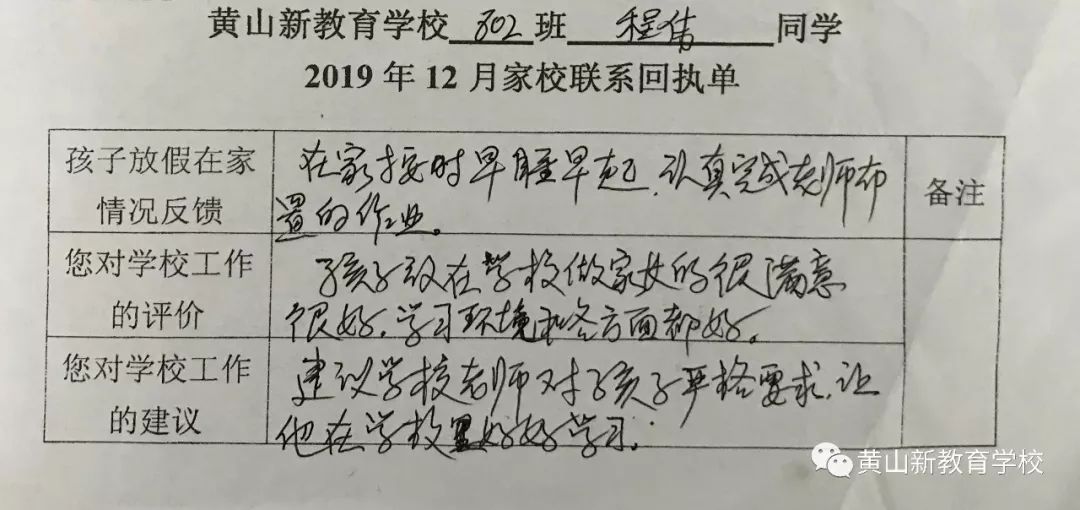 黄山新教育学校 802 班 程倩 同学
2019 年 12 月家校联系回执单
孩子放假在家
情况反馈
在家按时早睡早起,认真完成老师布
置的作业。
备注
您对学校工作
的评价
孩子放在学校做家长的很满意
很好,学习环境和各方面都好。
您对学校工作
的建议
建议学校老师对孩子严格要求,让
他在学校里好好学习.
黄山新教育学校